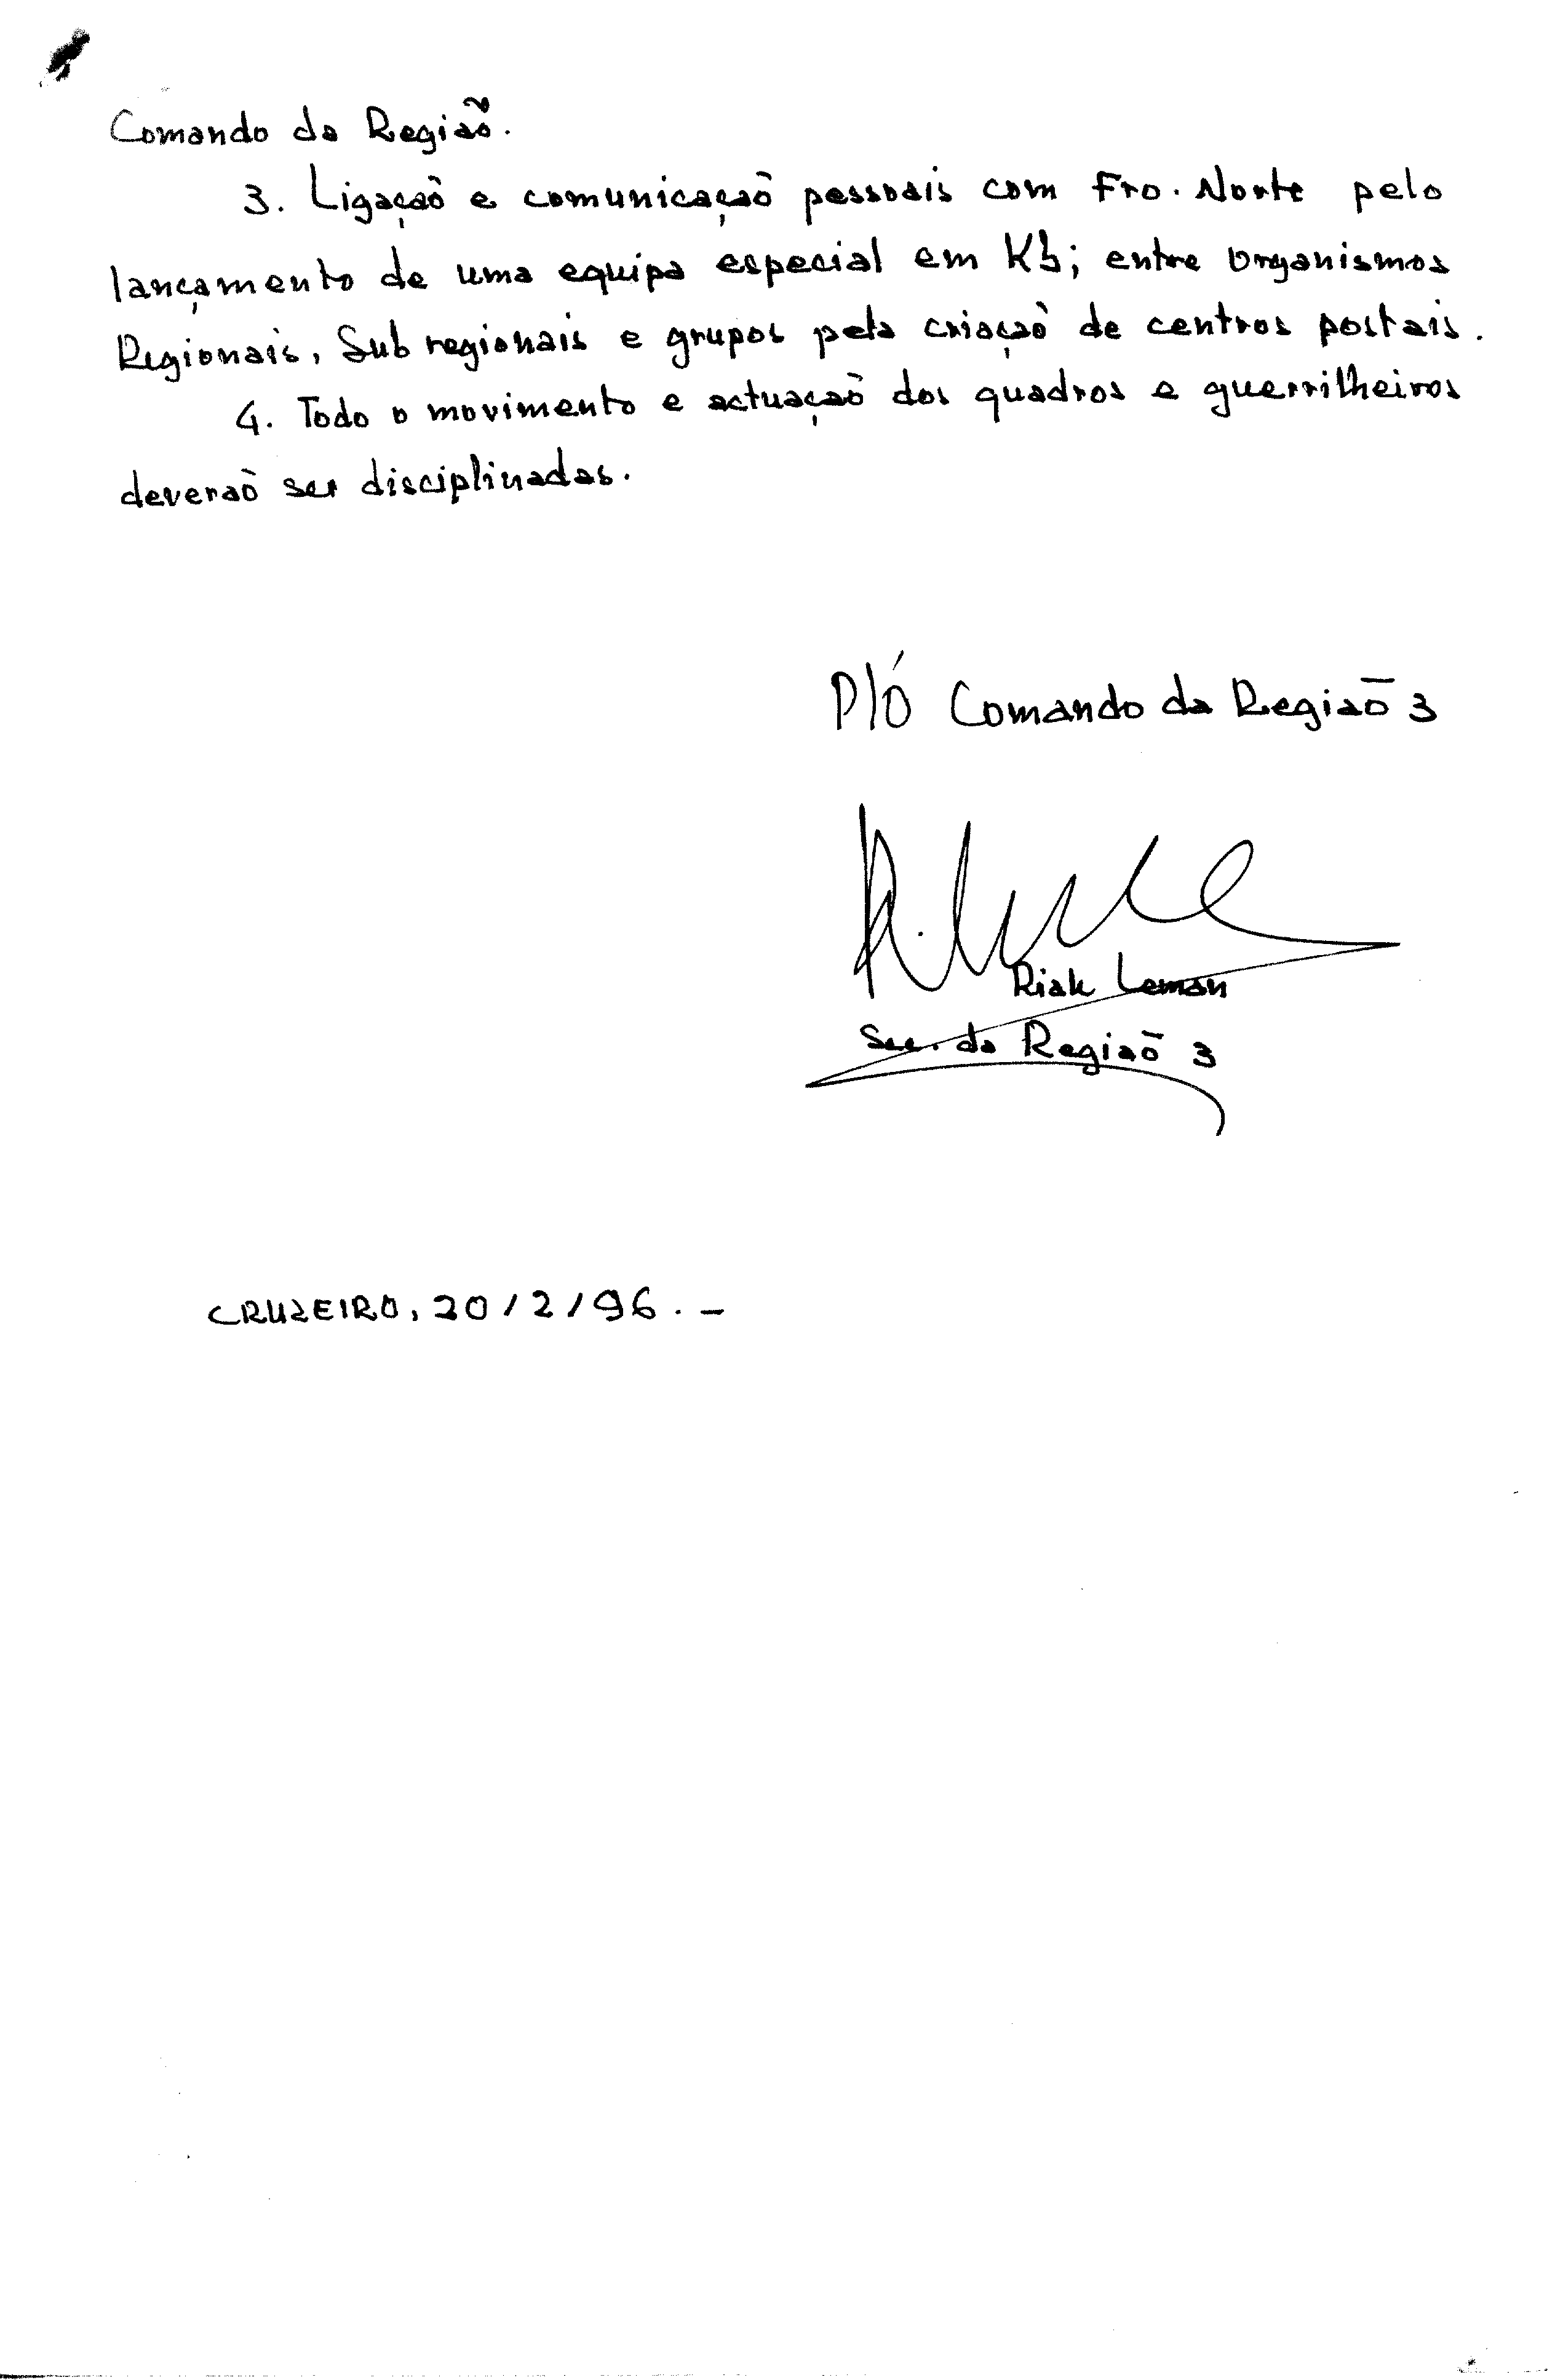 Comando da Região.
3. Ligação e comunicação pessoais com Fro. Norte pelo
lançamento de uma equipa especial em Kb; entre organismos
Regionais, Sub regionais e grupos pela criação de centros postais.
4. Todo o movimento e actuação dos quadros e guerrilheiros
deverão ser disciplinadas.
P/Ó Comando da Região 3
Riak Leman
Sec. da Região 3
CRUZEIRO, 20/2/96. -